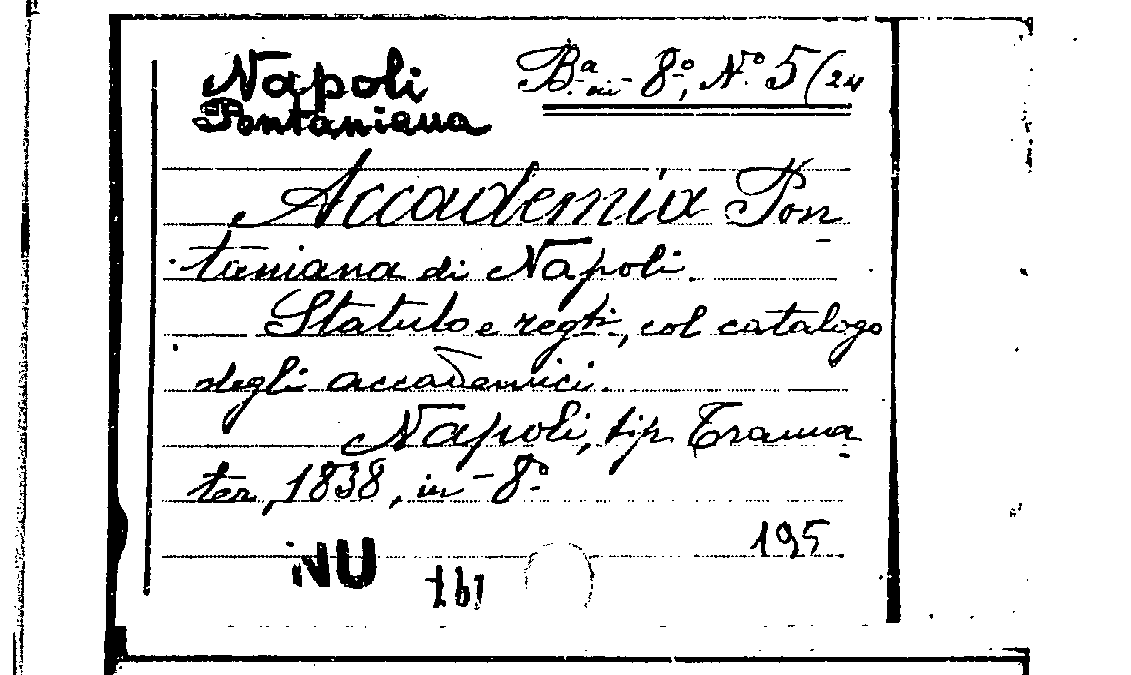 Napoli
Pontaniana
Bª in-8º, Nº 5 (24
Accademia Pon
taniana di Napoli.
Statuto e regti, col catalogo
degli accademici.
Napoli, tip. Trama
ter, 1838, in-8º
195
NU